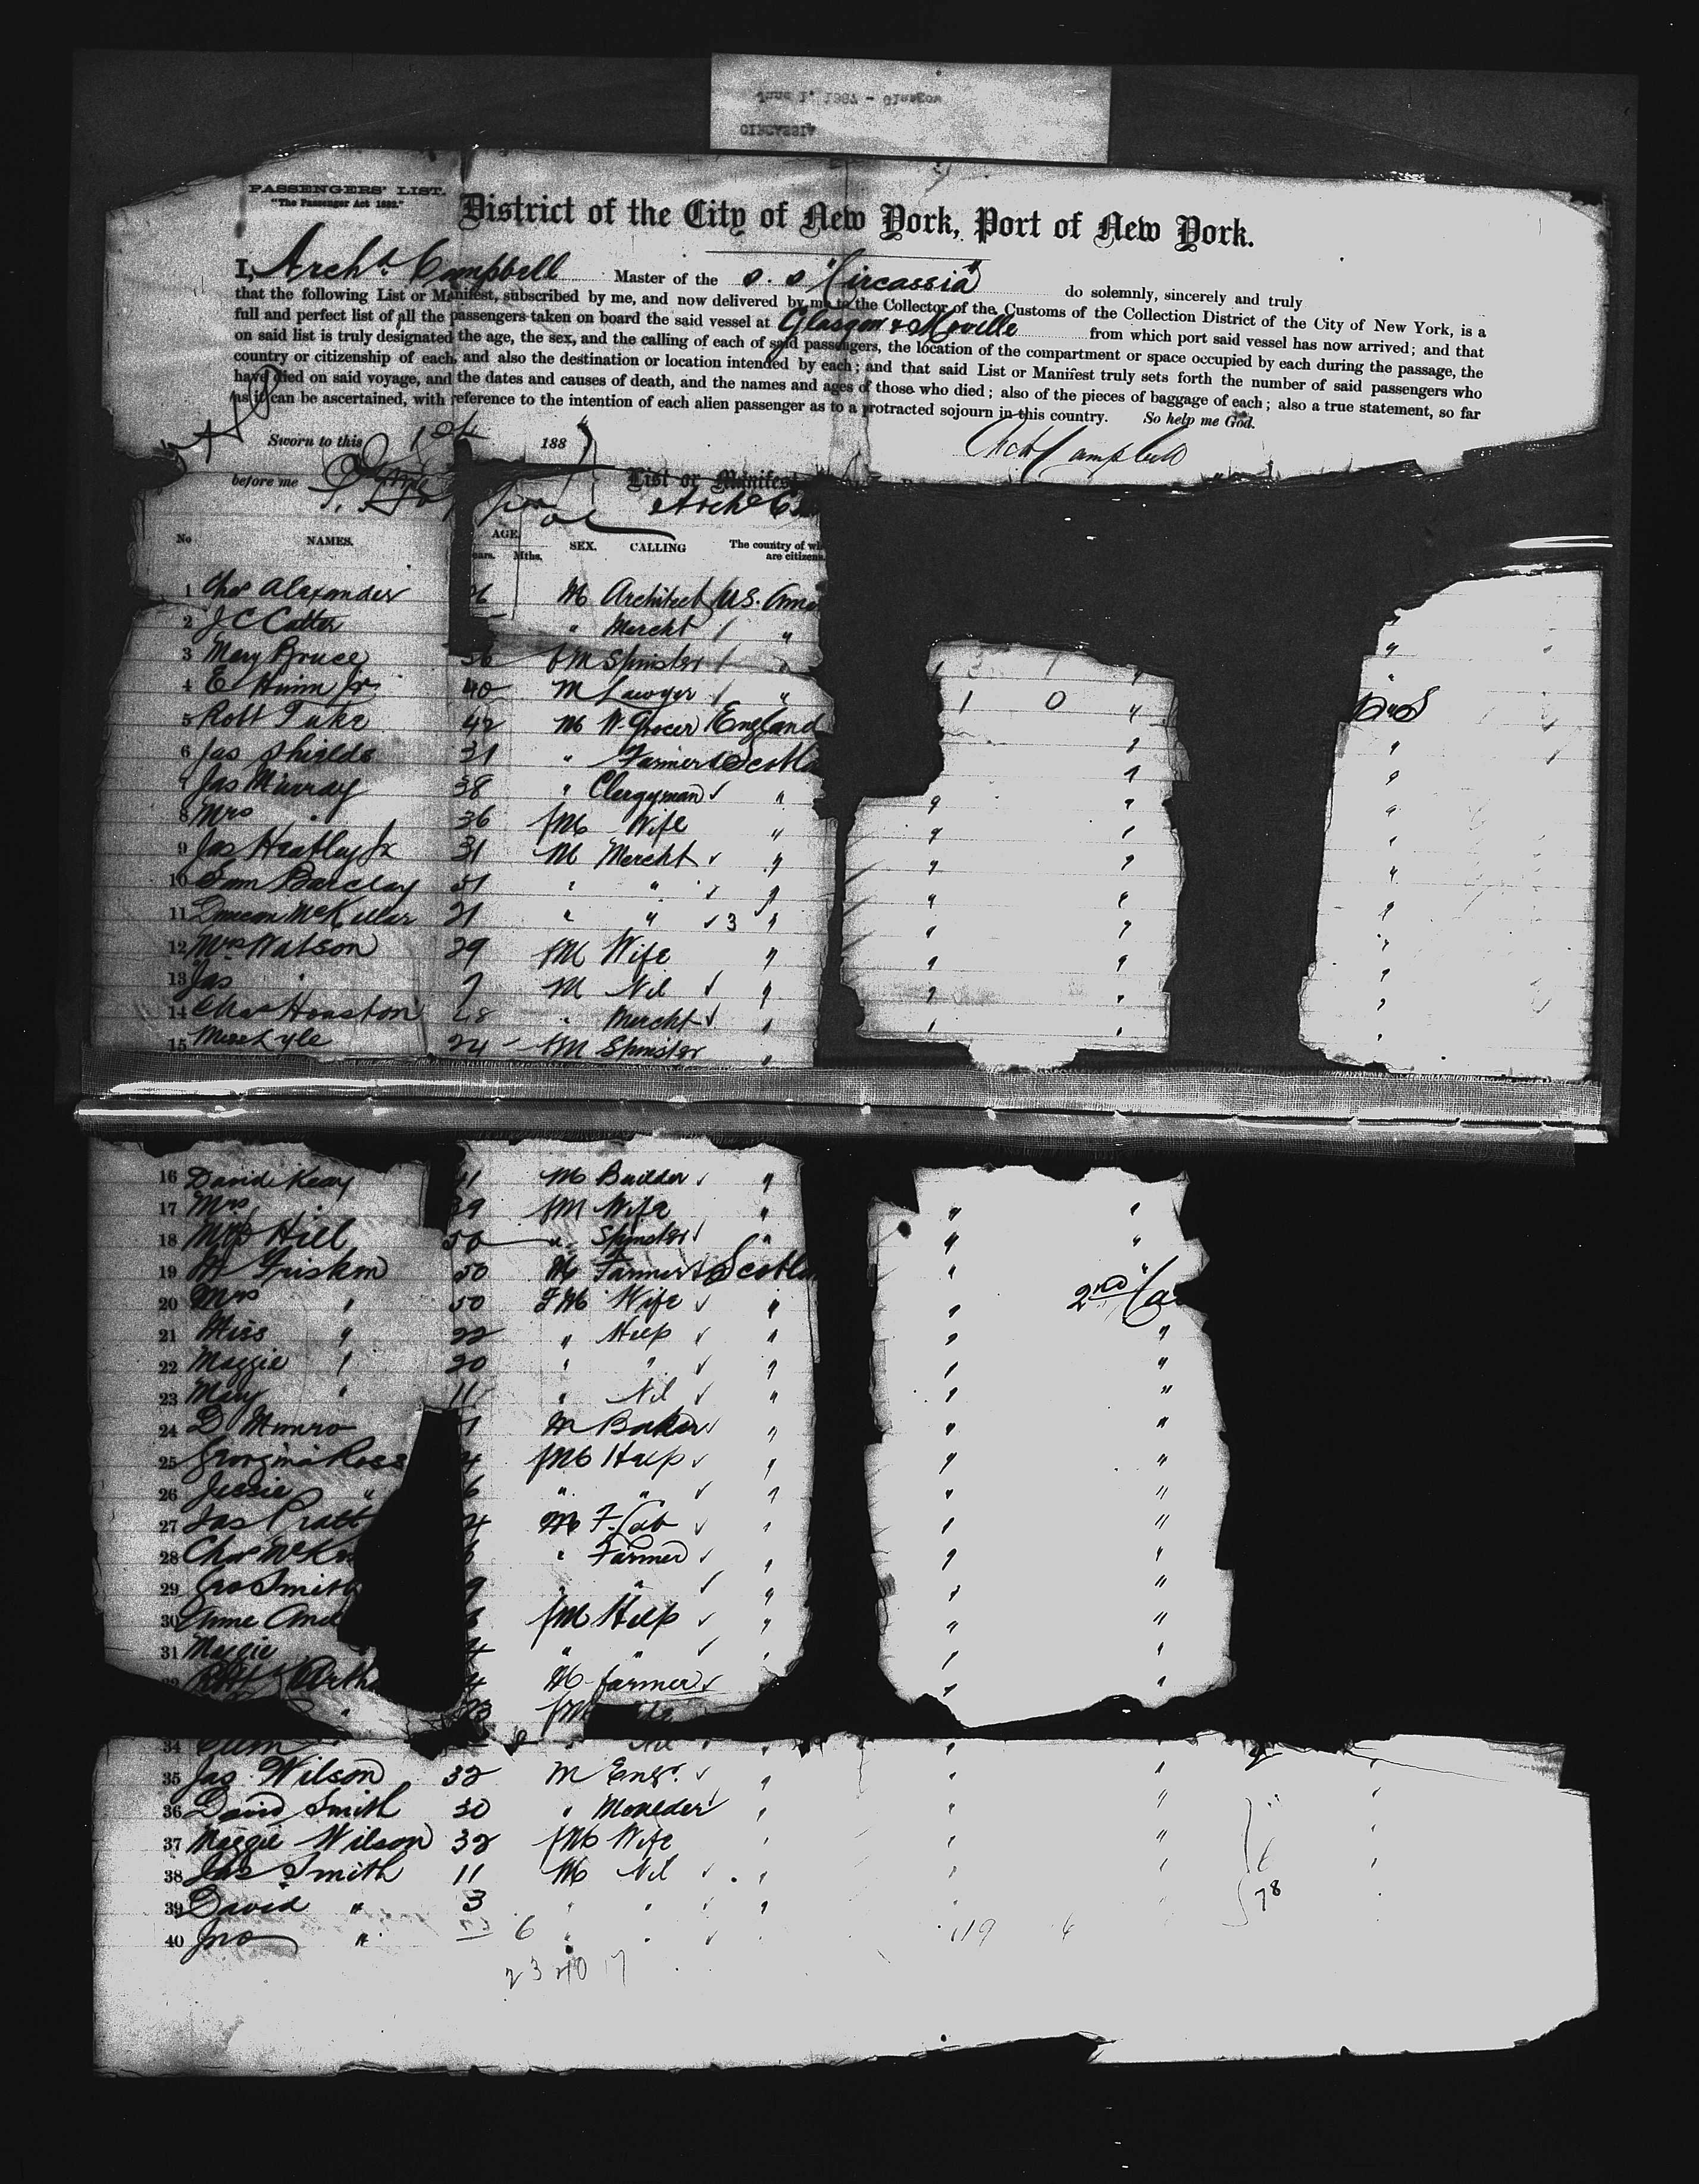 June 1, 1887 - Glasgow
CIRCASSIA
PASSENGERS' LIST.
"The Passenger Act 1882."
District of the City of New York, Port of New York.
I, Archd. Campbell Master of the s. s "Circassia" do solemnly, sincerely and truly
that the following List or Manifest, subscribed by me, and now delivered by me to the Collector of the Customs of the Collection District of the City of New York, is a
full and perfect list of all the passengers taken on board the said vessel at Glasgow & Moville from which port said vessel has now arrived; and that
on said list is truly designated the age, the sex, and the calling of each of said passengers, the location of the compartment or space occupied by each during the passage, the
country or citizenship of each, and also the destination or location intended by each; and that said List or Manifest truly sets forth the number of said passengers who
have died on said voyage, and the dates and causes of death, and the names and ages of those who died; also of the pieces of baggage of each; also a true statement, so far
as it can be ascertained, with reference to the intention of each alien passenger as to a protracted sojourn in this country. So help me God.
Sworn to this 188 Arch Campbell
before me List or Manifest
Archd C
No NAMES. AGE. ears. Mths. SEX. CALLING The country of wh are citizens
1 Chas Alexander 26 M Architect U.S. Ame
2 J C Catter " Mercht "
3 Mary Bruce 36 fM Spinster "
4 E Jr 40 M Lawyer "
5 Robt Tuke 42 M W. Grocer England 1 0 "
6 Jas Shields 31 " Farmer Scotla "
7 Jas Murray 38 " Clergyman "
8 Mrs " 36 fM Wife " " "
9 Jas Heatley Jr 31 M Mercht " " "
10 Sam Barclay 51 " " " " "
11 Duncan McKellar 21 " " 3 " " "
12 Mrs Watson 29 fM Wife " " "
13 Jas " 7 M Nil " " "
14 Chas Houston 28 " Mercht " " "
15 Miss Lyle 24 fM Spinster " " "
16 David Keay 41 M Builder "
17 Mrs " 39 fM Wife " " "
18 Miss Hill 50 " Spinster " " "
19 W Griskon 50 M Farmer Scotla " "
20 Mrs " 50 FM Wife " " 2nd Ca
21 Miss " 22 " Help " " "
22 Maggie " 20 " " " " "
23 Mary " 11 " Nil " " "
24 D Munro 1 M Baker " " "
25 Georgina Ross 4 fM Help " " "
26 Jessie " 6 " " " " "
27 Jas Pratt 4 M F. Lab " " "
28 Chas McK " Farmer " " "
29 Geo Smith 9 " " " " "
30 Anne And fM Help " " "
31 Maggie 4 " " " " "
Robt Arth 4 M farmer " "
" 23 fM
34 " Nil " " "
35 Jas Wilson 32 M Engr. " " "
36 David Smith 30 " Moulder " " "
37 Maggie Wilson 32 fM Wife " " "
38 Jas Smith 11 M Nil " " "
39 David " 3 " " " " 78
40 Jno " 6 " " 119 4
23 40 17